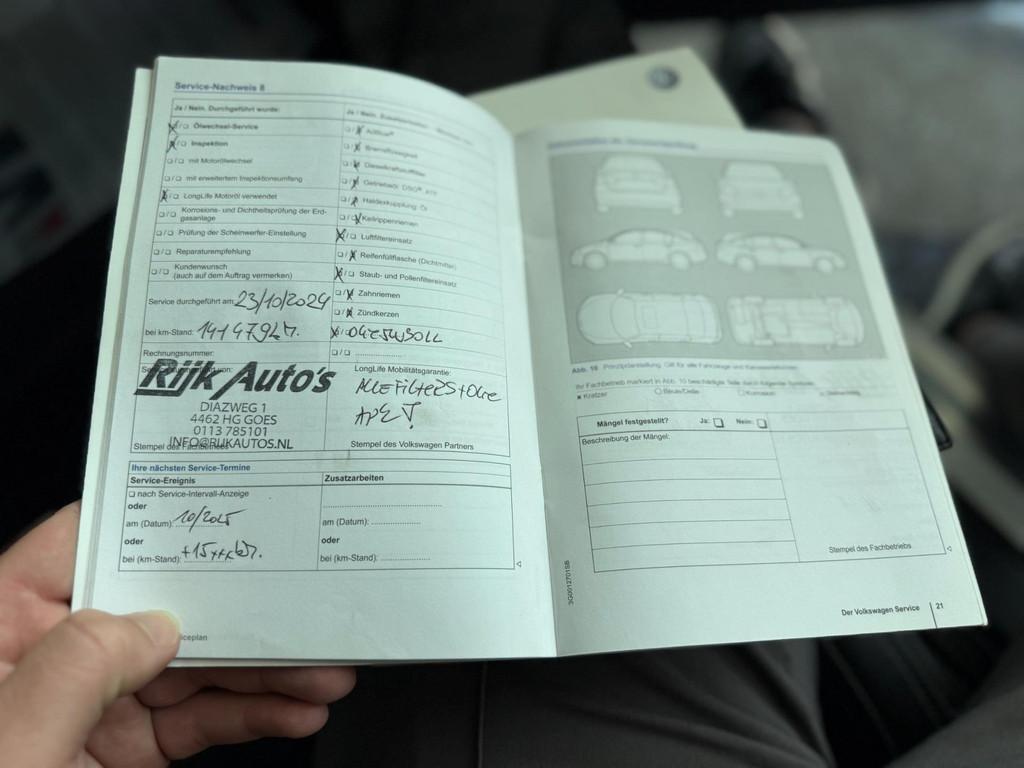 Service-Nachweis 8
Ja / Nein. Durchgeführt wurde:
Ölwechsel-Service
Inspektion
mit Motorölwechsel
mit erweitertem Inspektionsumfang
LongLife Motoröl verwendet
Korrosions- und Dichtheitsprüfung der Erd-
gasanlage
Prüfung der Scheinwerfer-Einstellung
Reparaturempfehlung
Kundenwunsch
(auch auf dem Auftrag vermerken)
Service durchgeführt am: 23/10/2024
bei km-Stand: 141479
Rechnungsnummer:
Rijk Auto's
DIAZWEG 1
4462 HG GOES
0113 785101
INFO@RIJKAUTOS.NL
Stempel des Fachbetriebes
Ja / Nein.
AdBlue®
Bremsflüssigkeit
Dieselkraftstofffilter
Getriebeöl DSG®
Haldexkupplung: Öl
Keilrippenriemen
Luftfiltereinsatz
Reifenfüllflasche (Dichtmittel)
Staub- und Pollenfiltereinsatz
Zahnriemen
Zündkerzen
LongLife Mobilitätsgarantie:
ALLE FILTERS + OLIE
Stempel des Volkswagen Partners
Ihre nächsten Service-Termine
Service-Ereignis
Zusatzarbeiten
nach Service-Intervall-Anzeige
oder
am (Datum): 10/2025
oder
bei (km-Stand):
am (Datum):
oder
bei (km-Stand):
iceplan
Abb. 10 Prinzipdarstellung. Gilt für alle Fahrzeuge und Karosserieformen
Ihr Fachbetrieb markiert in Abb. 10 beschädigte Teile durch folgende Symbole:
Kratzer
Mängel festgestellt? Ja: Nein:
Beschreibung der Mängel:
Stempel des Fachbetriebs
3G0012701SB
Der Volkswagen Service 21